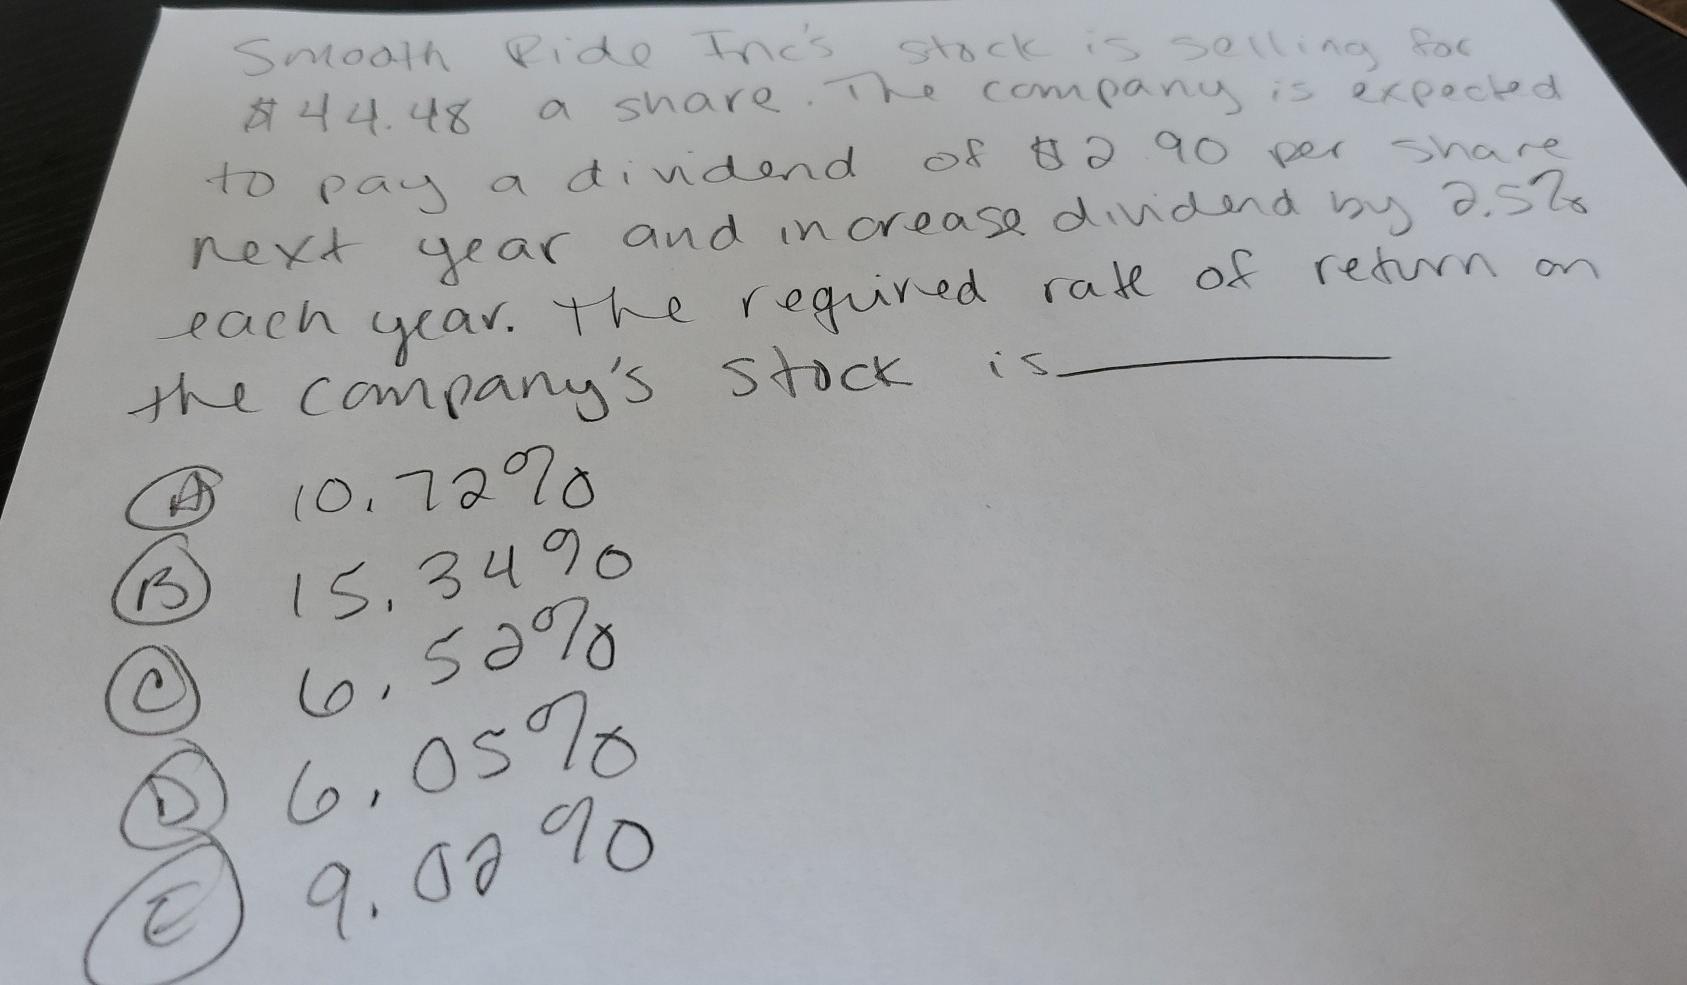 Smooth Ride Inc's stock is selling for
$44.48 a share. The company is expected
to pay a dividend of $2.90 per share
next year and increase dividend by 2.5%
each year. The required rate of return on
the company's stock is
A 10.72%
B 15.34%
C 6.52%
D 6.05%
E 9.02%